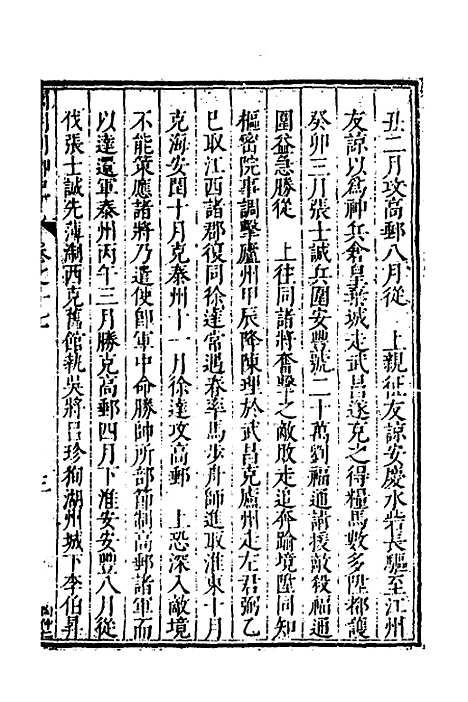 丑二月攻高郵八月從　上親征友諒安慶水砦長驅至江州
友諒以爲神兵倉皇棄城走武昌遂克之得糧馬數多陞都護
癸卯三月張士誠兵圍安豐號二十萬劉福通請援敵殺福通
圍益急勝從　上往同諸將奮擊之敵敗走追奔踰境陞同知
樞密院事調擊廬州甲辰降陳理於武昌克廬州走左君弼乙
巳取江西諸郡復同徐達常遇春率馬步舟師進取淮東十月
克海安閏十月克泰州十一月徐達攻高郵　上恐深入敵境
不能策應諸將乃遣使卽軍中命勝師所部節制高郵諸軍而
以達還軍泰州丙午三月勝克高郵四月下淮安安豐八月從
伐張士誠先薄湖西克舊館執吳將呂珍狥湖州城下李伯昇
卷之十七
三